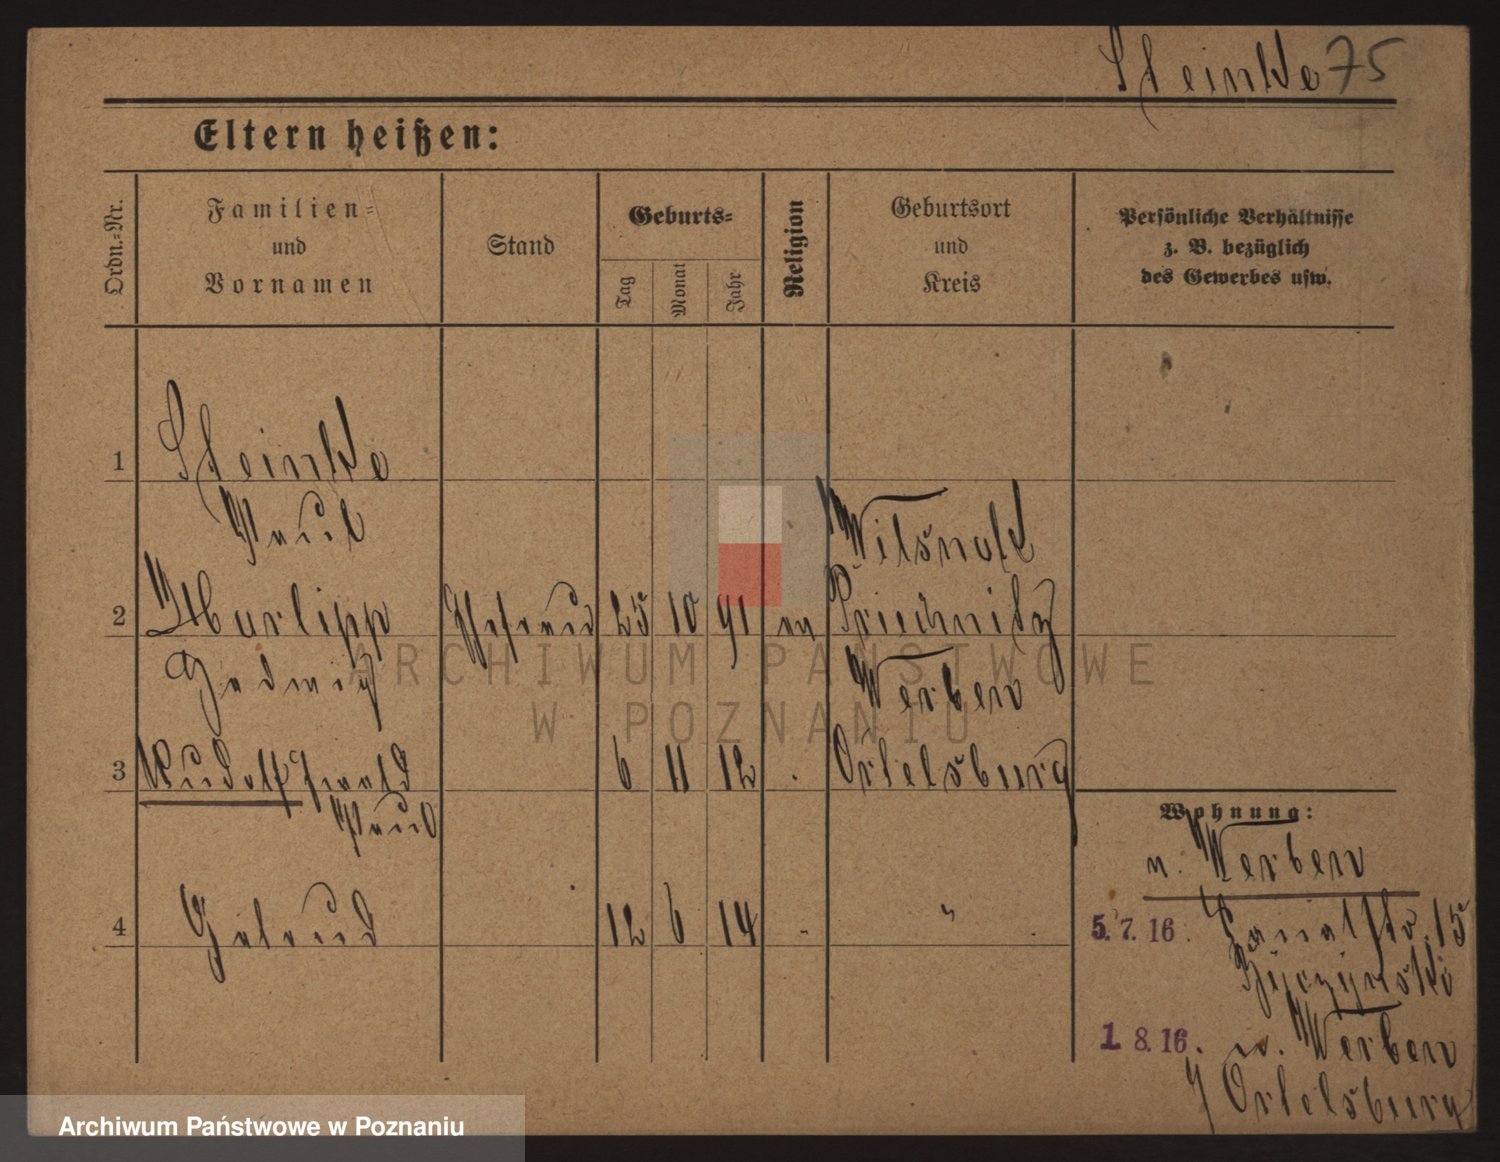 Steinke 75
Eltern heißen:
Ordn.-Nr.
Familien-
und
Vornamen
Stand
Geburts-
Tag
Monat
Jahr
Religion
Geburtsort
und
Kreis
Persönliche Verhältnisse
z. B. bezüglich
des Gewerbes usw.
1
Steinke
Paul
2
Ehefrau
25 10 91
ev
Wilsnack
Priegnitz
Hedwig
Werben
3
Rudolf Ewald
Paul
6 11 12
Ortelsburg
Wohnung:
n. Werben
4
Gertrud
12 6 14
"
5. 7. 16.
15
1. 8. 16.
n. Werben
Ortelsburg
ARCHIWUM PAŃSTWOWE
W POZNANIU
Archiwum Państwowe w Poznaniu